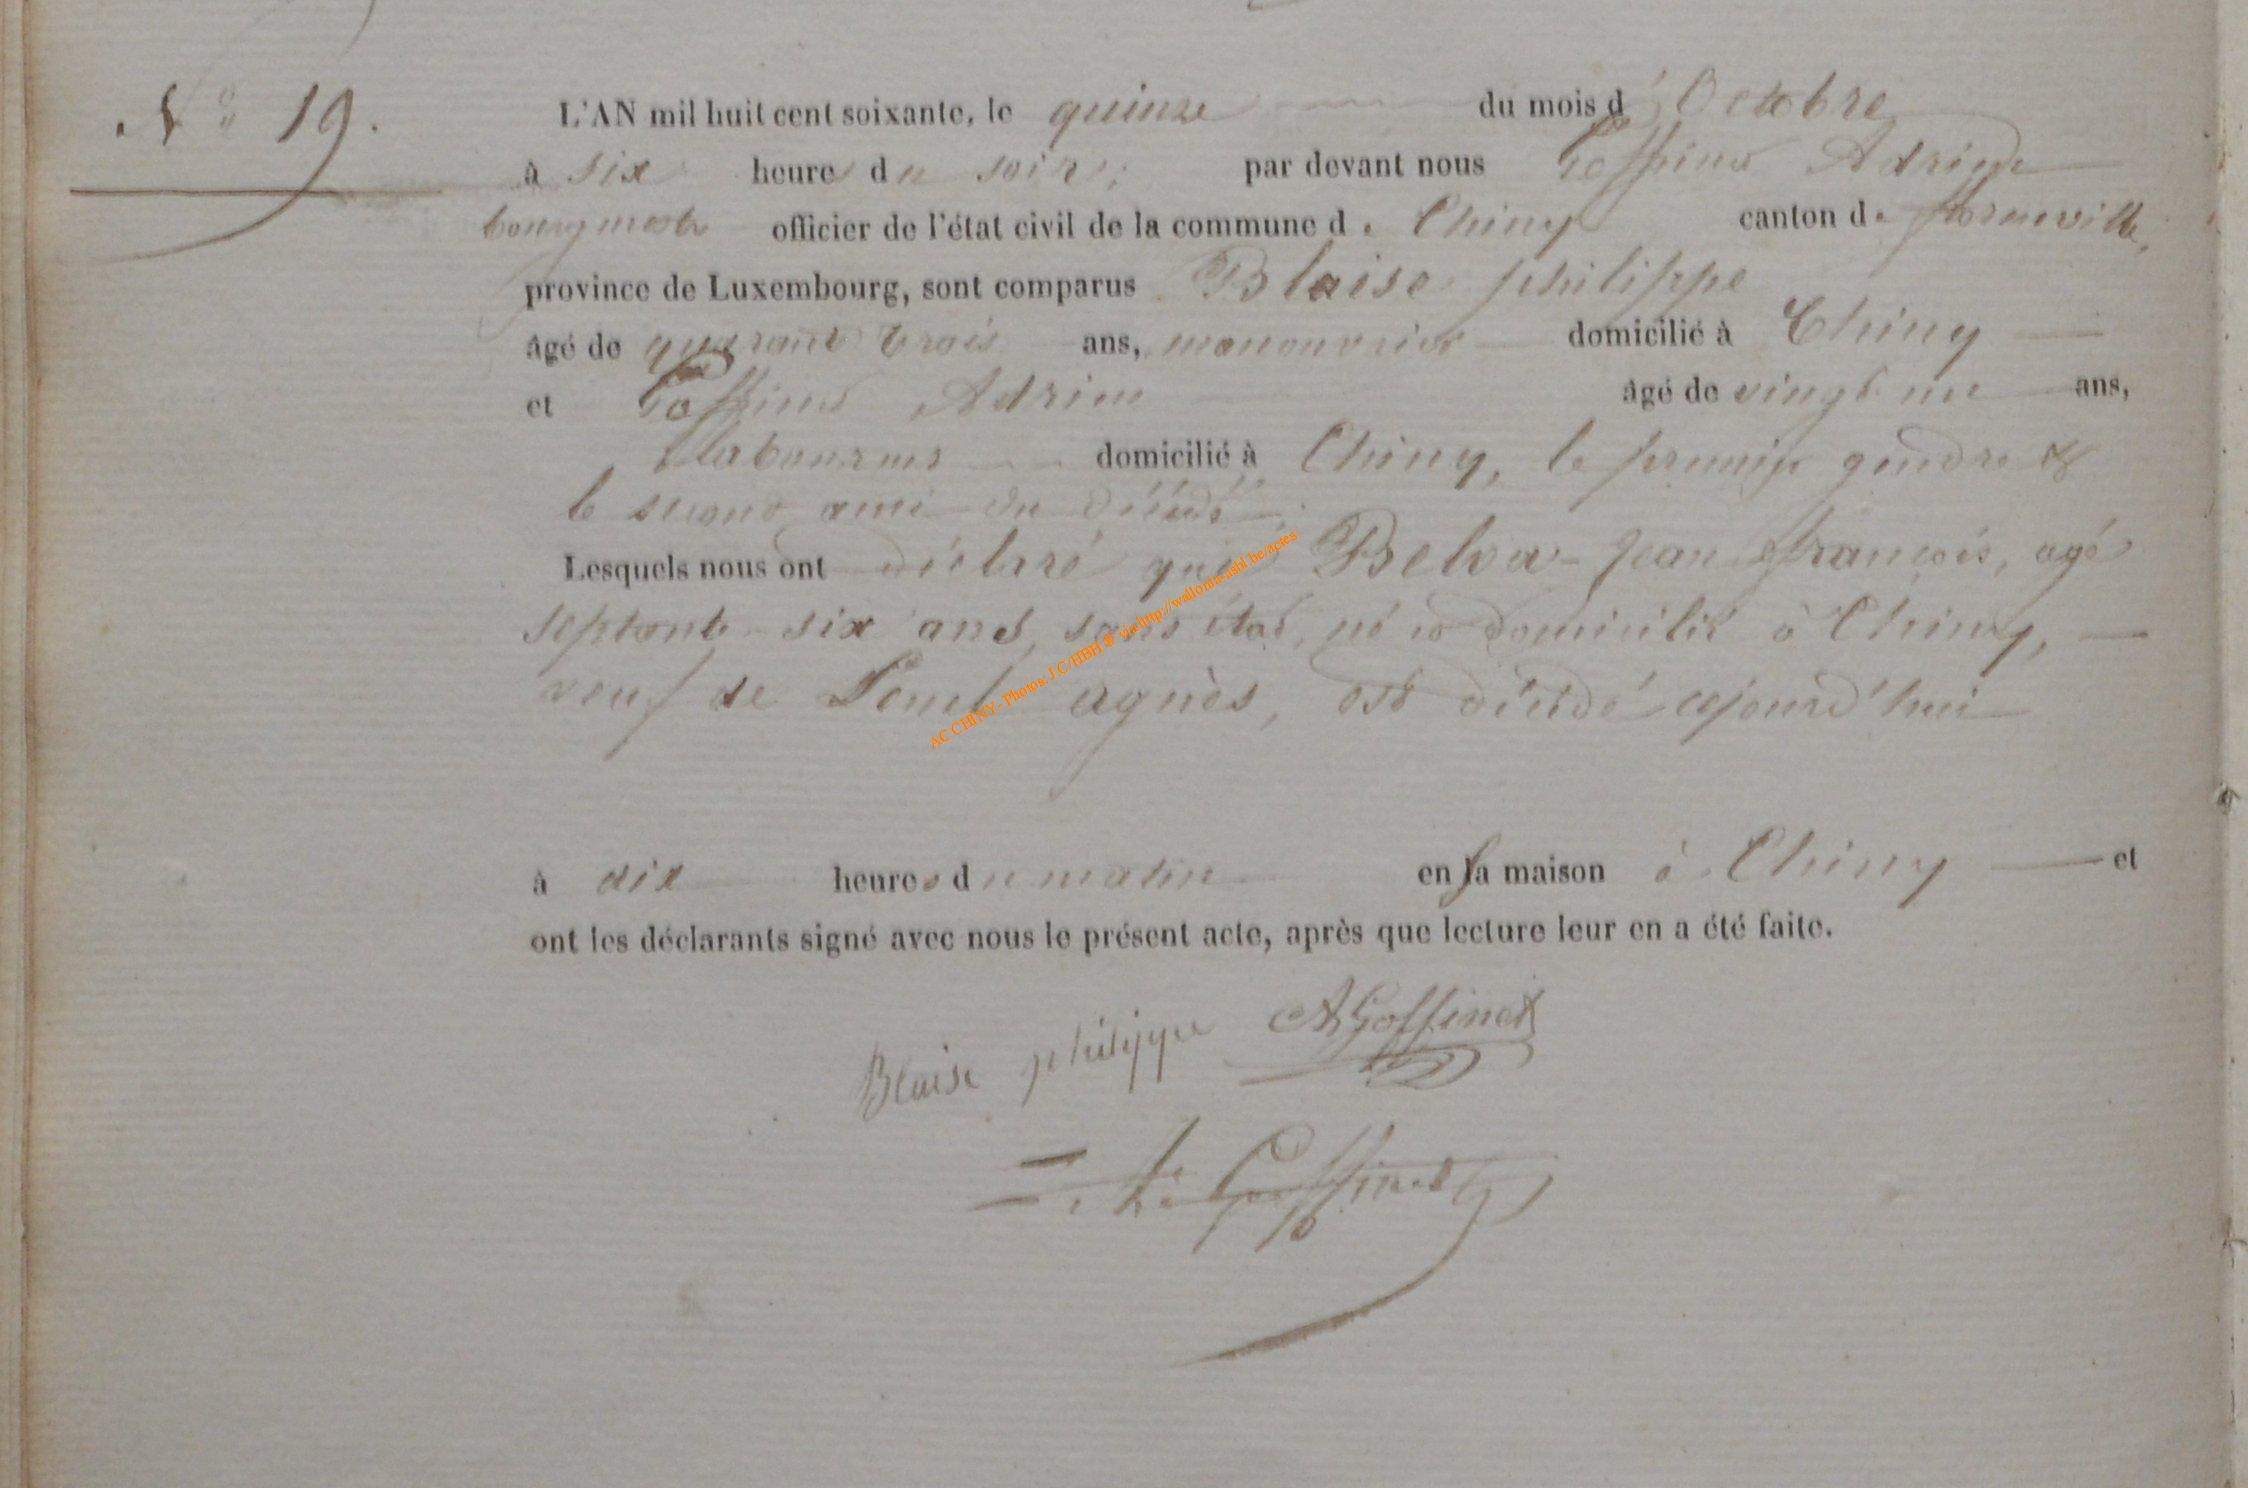 N° 19.
L'AN mil huit cent soixante, le quinze du mois d'Octobre
à six heures du soir, par devant nous Goffinet Adrien
bourgmestre officier de l'état civil de la commune de Chiny canton de florenville,
province de Luxembourg, sont comparus Blaise philippe
âgé de quarante trois ans, manouvrier domicilié à Chiny
et Goffinet Adrien âgé de vingt un ans,
laboureur domicilié à Chiny, le premier gendre &
le second ami du décédé,
Lesquels nous ont déclaré que Belva Jean françois, agé
septante-six ans, sans état, né et domicilié à Chiny,
veuf de agnès, est décédé cejourd'hui
à dix heures du matin en sa maison à Chiny et
ont les déclarants signé avec nous le présent acte, après que lecture leur en a été faite.
Blaise philippe AGoffinet
Goffinet
AC CHINY- Photos: J C/HBH ® via http://wallonia-asbl.be/actes